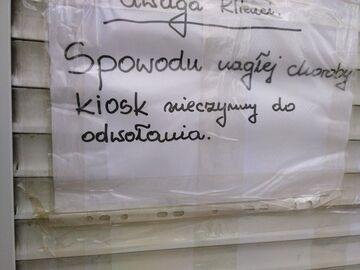 Uwaga Klienci.
Spowodu nagłej choroby
Kiosk nieczynny do
odwołania.